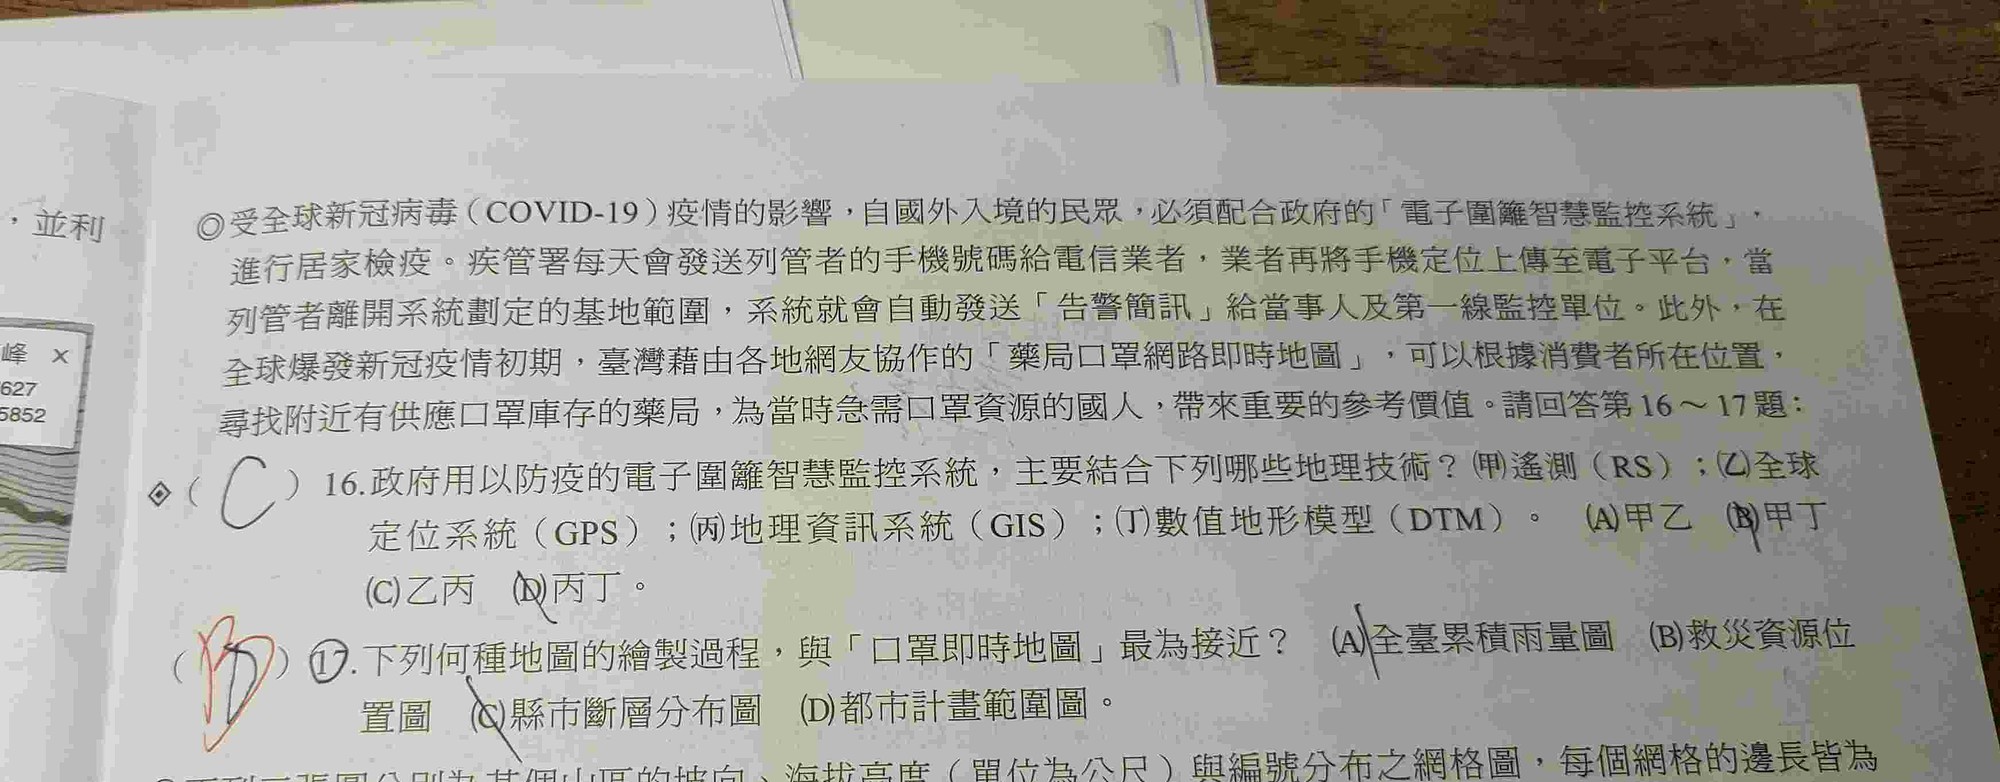 ，並利
峰 ×
627
5852
◎受全球新冠病毒（COVID-19）疫情的影響，自國外入境的民眾，必須配合政府的「電子圍籬智慧監控系統」，
進行居家檢疫。疾管署每天會發送列管者的手機號碼給電信業者，業者再將手機定位上傳至電子平台，當
列管者離開系統劃定的基地範圍，系統就會自動發送「告警簡訊」給當事人及第一線監控單位。此外，在
全球爆發新冠疫情初期，臺灣藉由各地網友協作的「藥局口罩網路即時地圖」，可以根據消費者所在位置，
尋找附近有供應口罩庫存的藥局，為當時急需口罩資源的國人，帶來重要的參考價值。請回答第16～17題：
（C）16.政府用以防疫的電子圍籬智慧監控系統，主要結合下列哪些地理技術？(甲)遙測（RS）；(乙)全球
定位系統（GPS）；(丙)地理資訊系統（GIS）；(丁)數值地形模型（DTM）。 (A)甲乙 (B)甲丁
(C)乙丙 (D)丙丁。
（B D）17.下列何種地圖的繪製過程，與「口罩即時地圖」最為接近？ (A)全臺累積雨量圖 (B)救災資源位
置圖 (C)縣市斷層分布圖 (D)都市計畫範圍圖。
海拔高度（單位為公尺）與編號分布之網格圖，每個網格的邊長皆為